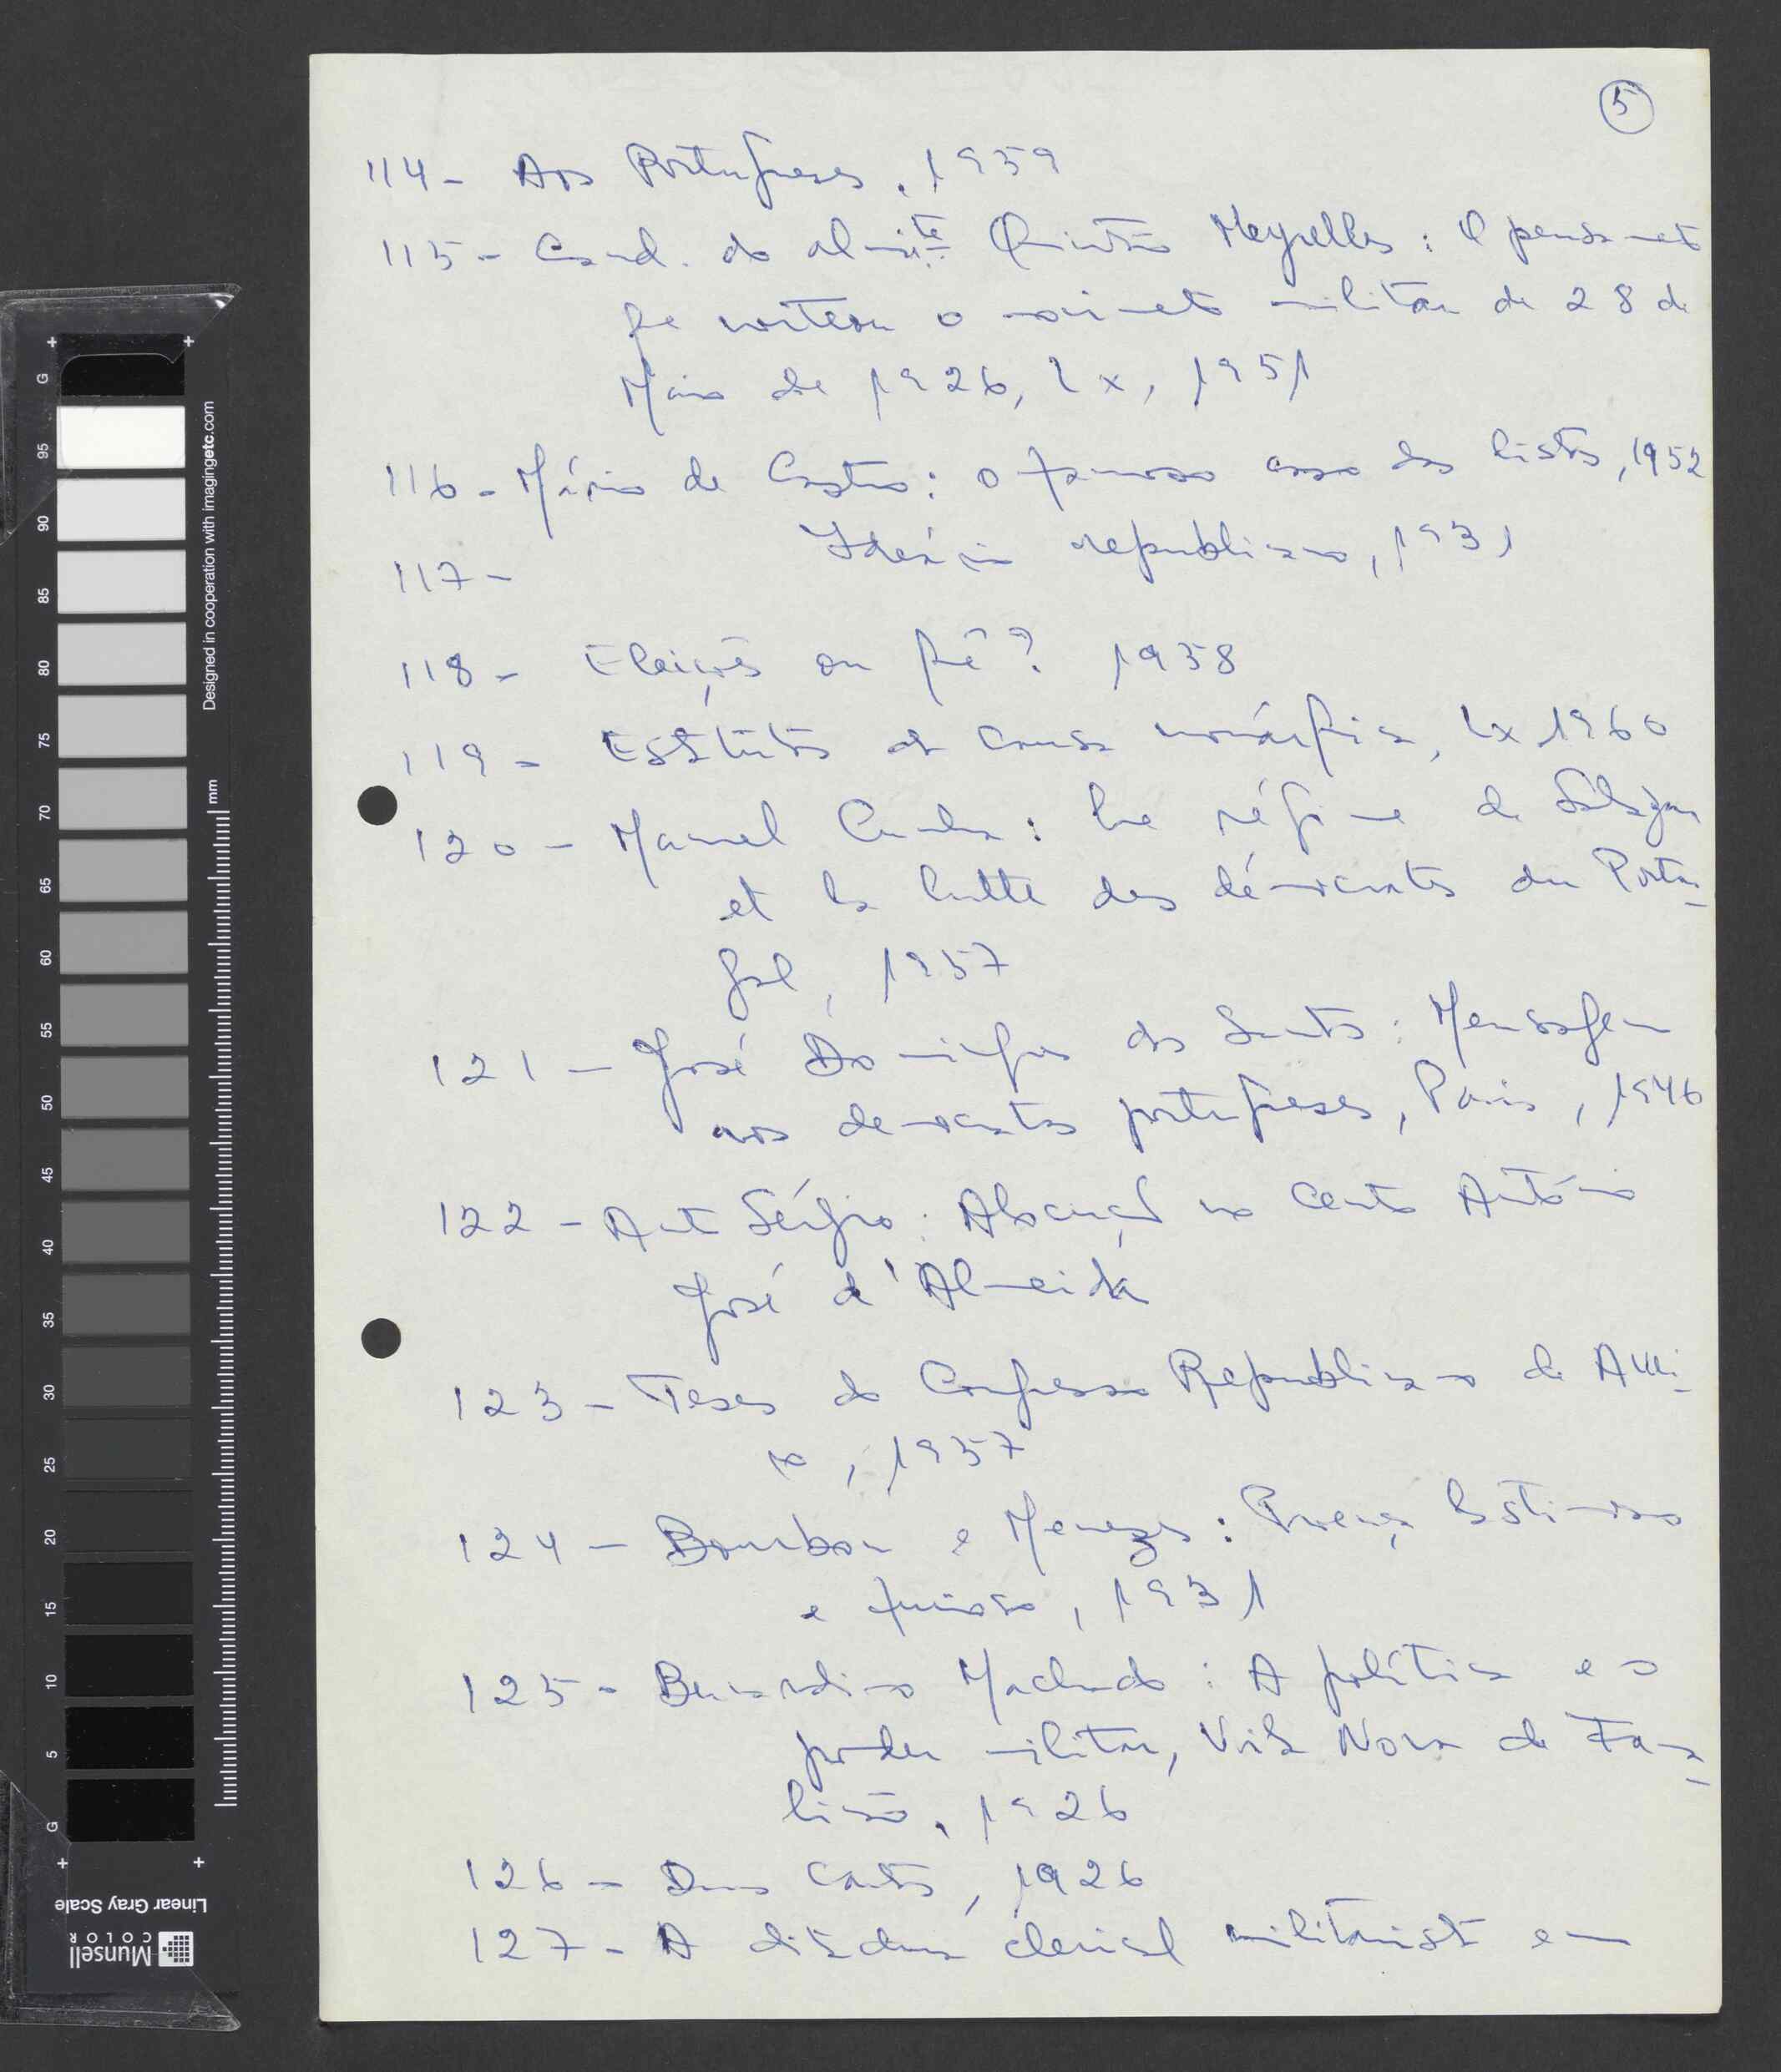 5
114 - Aos Portugueses, 1959
115 - Cand. do almite Quintão Meyrelles: O pensamento
que norteou o movimento militar de 28 de
Maio de 1926, Lx, 1951
116 - Mário de Castro: o famoso caso das listas, 1952
117 - Ideário republicano, 1931
118 - Eleições ou quê? 1958
119 - Estatutos da Causa monárquica, Lx 1960
120 - Manuel Cunha: Le régime de Salazar
et la lutte des démocrates du Portu-
gal, 1957
121 - José Domingues dos Santos: Mensagem
aos democratas portugueses, Paris, 1946
122 - Ant Sérgio: Alocução no Cento António
José d'Almeida
123 - Teses do Congresso Republicano de Avei-
ro, 1957
124 - Bourbon e Menezes: Proença lastimoso
e furioso, 1931
125 - Bernardino Machado: A política e o
poder militar, Vila Nova de Fama-
licão, 1926
126 - Duas Cartas, 1926
127 - A ditadura clerical militarista em
Designed in cooperation with imagingetc.com
mm
G 95 90 85 80 75 70 65 60 55 50 45 40 35 30 25 20 15 10 5 G
Linear Gray Scale
Munsell
COLOR